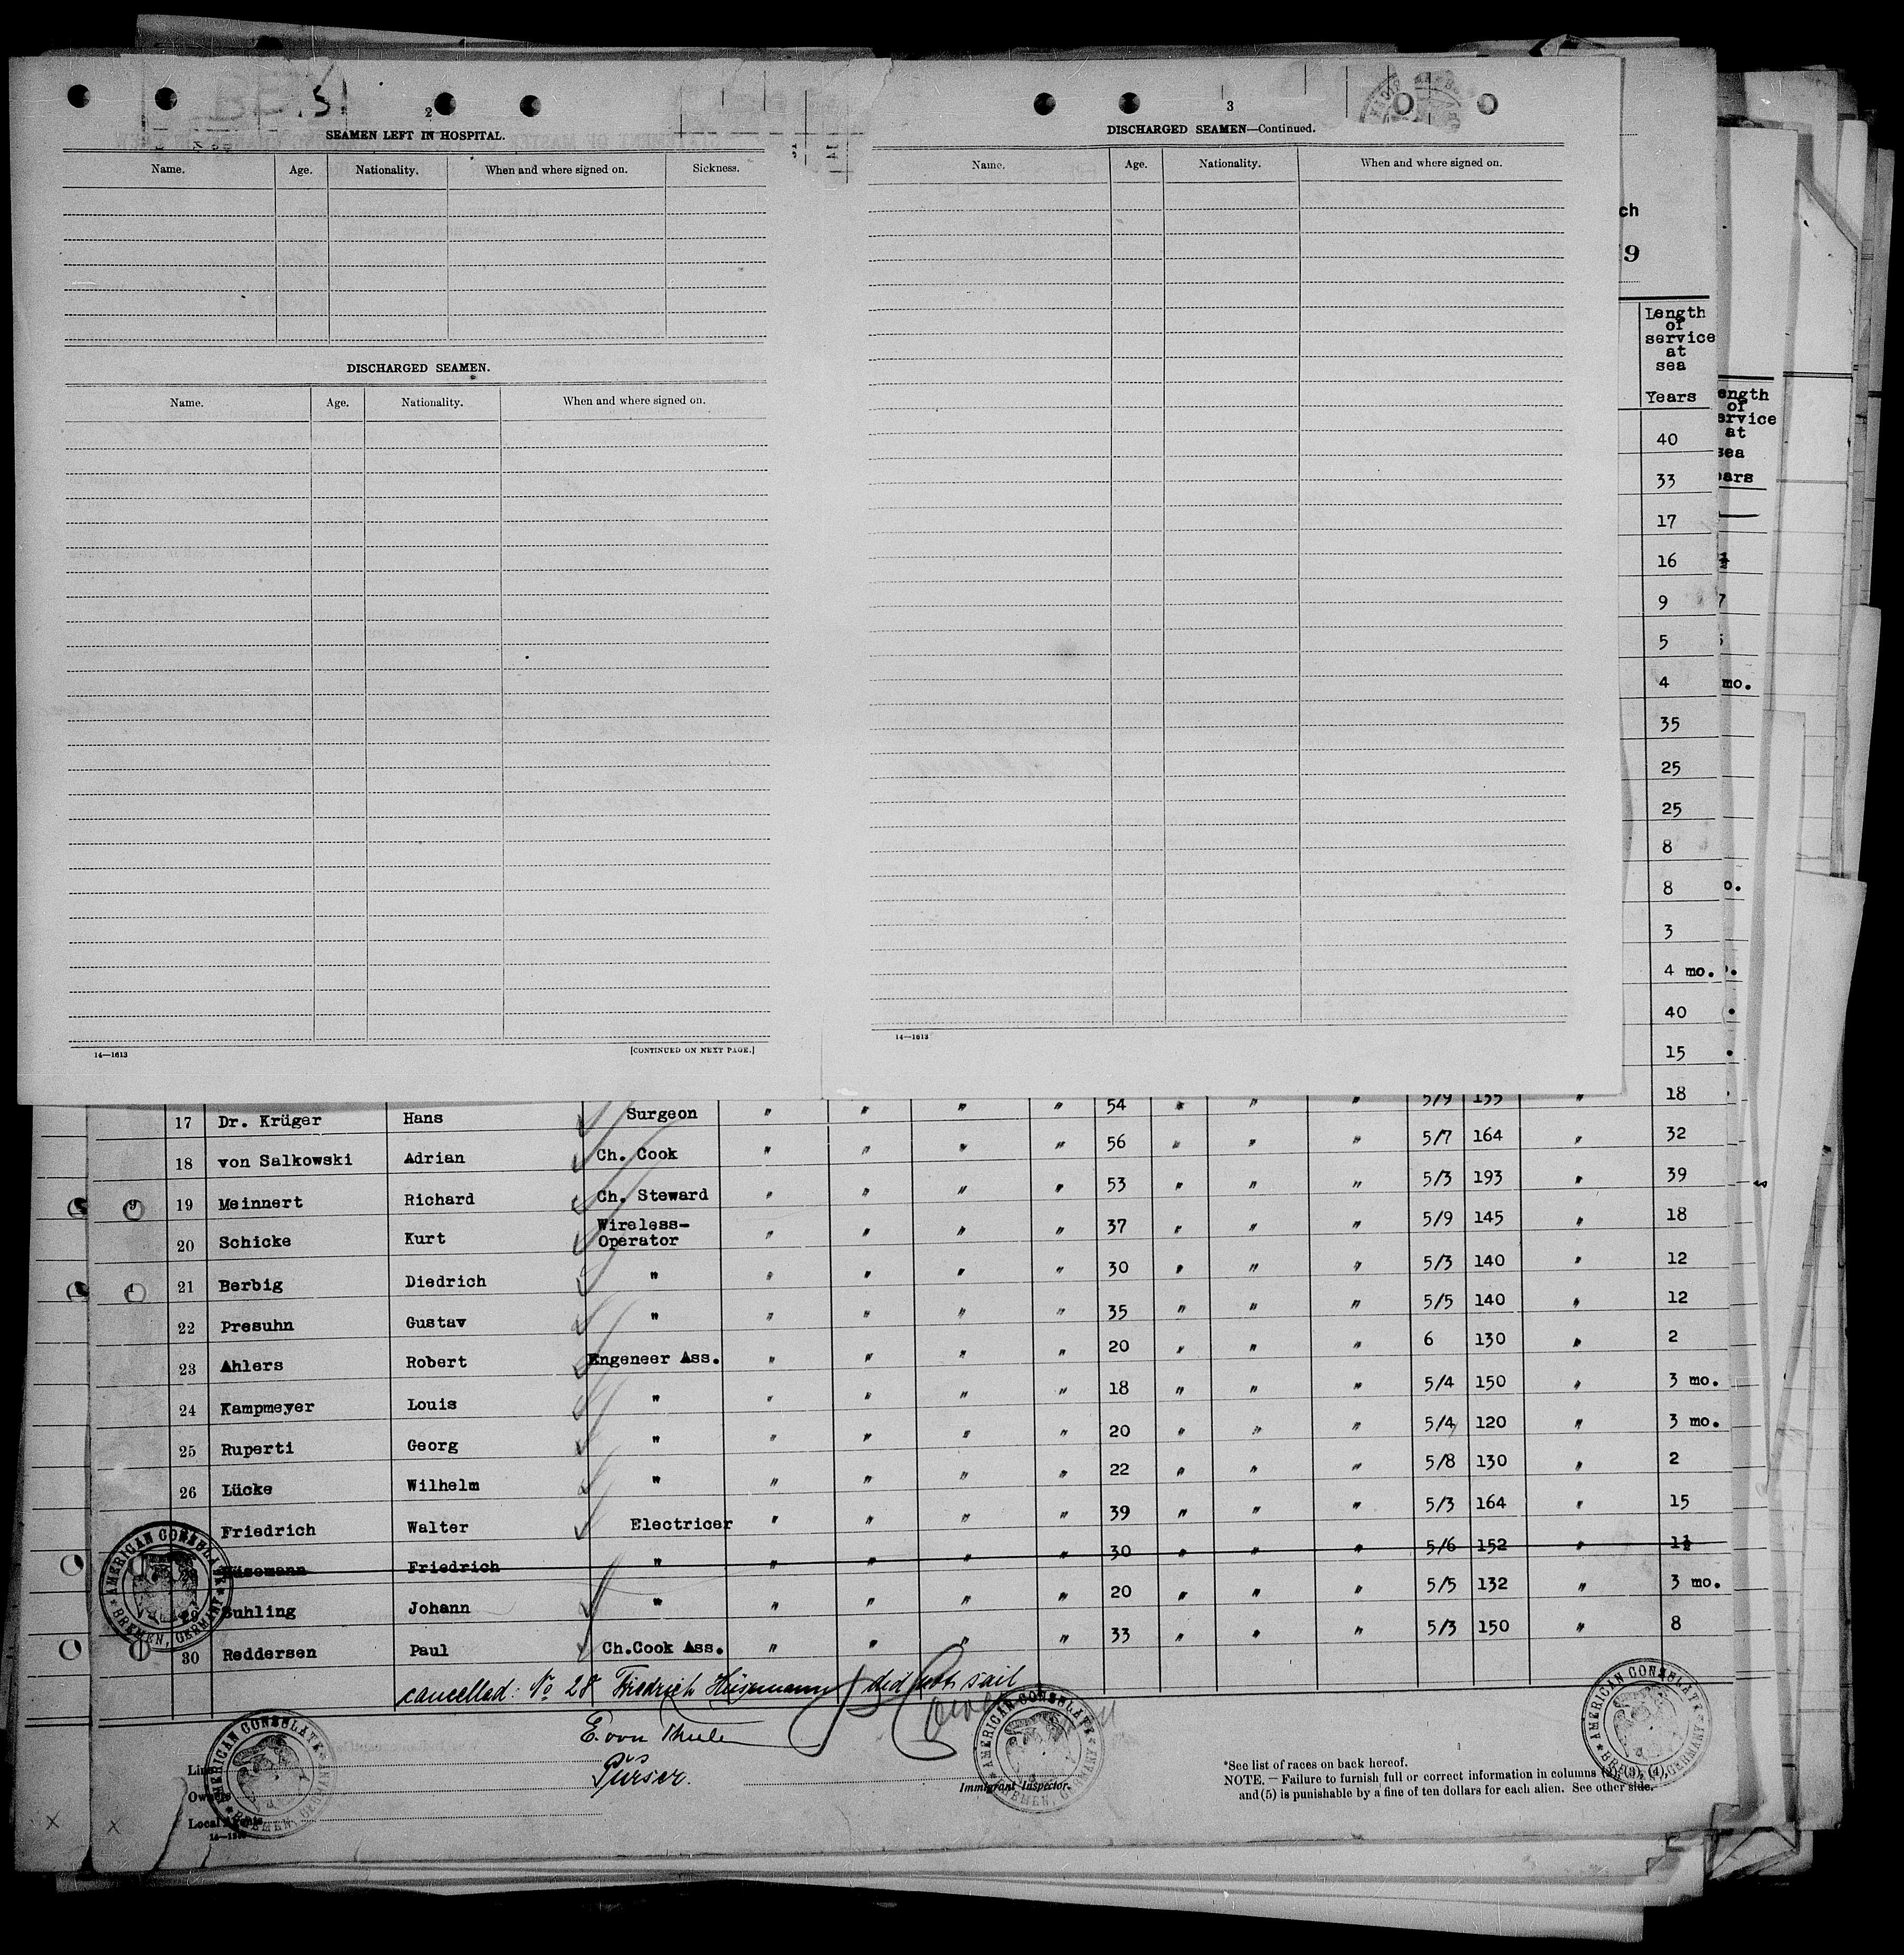 2
SEAMEN LEFT IN HOSPITAL.
Name. Age. Nationality. When and where signed on. Sickness.
DISCHARGED SEAMEN.
Name. Age. Nationality. When and where signed on.
14—1613 [CONTINUED ON NEXT PAGE.]
3
DISCHARGED SEAMEN—Continued.
Name. Age. Nationality. When and where signed on.
14—1613
ch
9
Length
of
service
at
sea
Years
40
33
17
16
9
5
4
35
25
25
8
8
3
4 mo.
40
15
ength
of
ervice
at
sea
ears
mo.
17 Dr. Krüger Hans Surgeon " " " " 54 " " " 5/9 155 " 18
18 von Salkowski Adrian Ch. Cook " " " " 56 " " " 5/7 164 " 32
19 Meinnert Richard Ch. Steward " " " " 53 " " " 5/3 193 " 39
20 Schicke Kurt Wireless-
Operator " " " " 37 " " " 5/9 145 " 18
21 Berbig Diedrich " " " " " 30 " " " 5/3 140 " 12
22 Presuhn Gustav " " " " " 35 " " " 5/5 140 " 12
23 Ahlers Robert Engeneer Ass. " " " " 20 " " " 6 130 " 2
24 Kampmeyer Louis " " " " " 18 " " " 5/4 150 " 3 mo.
25 Ruperti Georg " " " " " 20 " " " 5/4 120 " 3 mo.
26 Lücke Wilhelm " " " " " 22 " " " 5/8 130 " 2
Friedrich Walter Electricer " " " " 39 " " " 5/3 164 " 15
Hüsemann Friedrich " " " " " 30 " " " 5/6 152 " 1½
29 Suhling Johann " " " " " 20 " " " 5/5 132 " 3 mo.
30 Reddersen Paul Ch.Cook Ass. " " " " 33 " " " 5/3 150 " 8
cancelled: No 28 Friedrich Hüsemann did not sail
E. von
Pürser.
Line
Owners
Local Agents
Immigrant Inspector.
*See list of races on back hereof.
NOTE.—Failure to furnish full or correct information in columns (2), (3), (4),
and (5) is punishable by a fine of ten dollars for each alien. See other side.
AMERICAN CONSULATE
BREMEN, GERMANY
AMERICAN CONSULATE
BREMEN, GERMANY
AMERICAN CONSULATE
BREMEN, GERMANY
AMERICAN CONSULATE
BREMEN, GERMANY